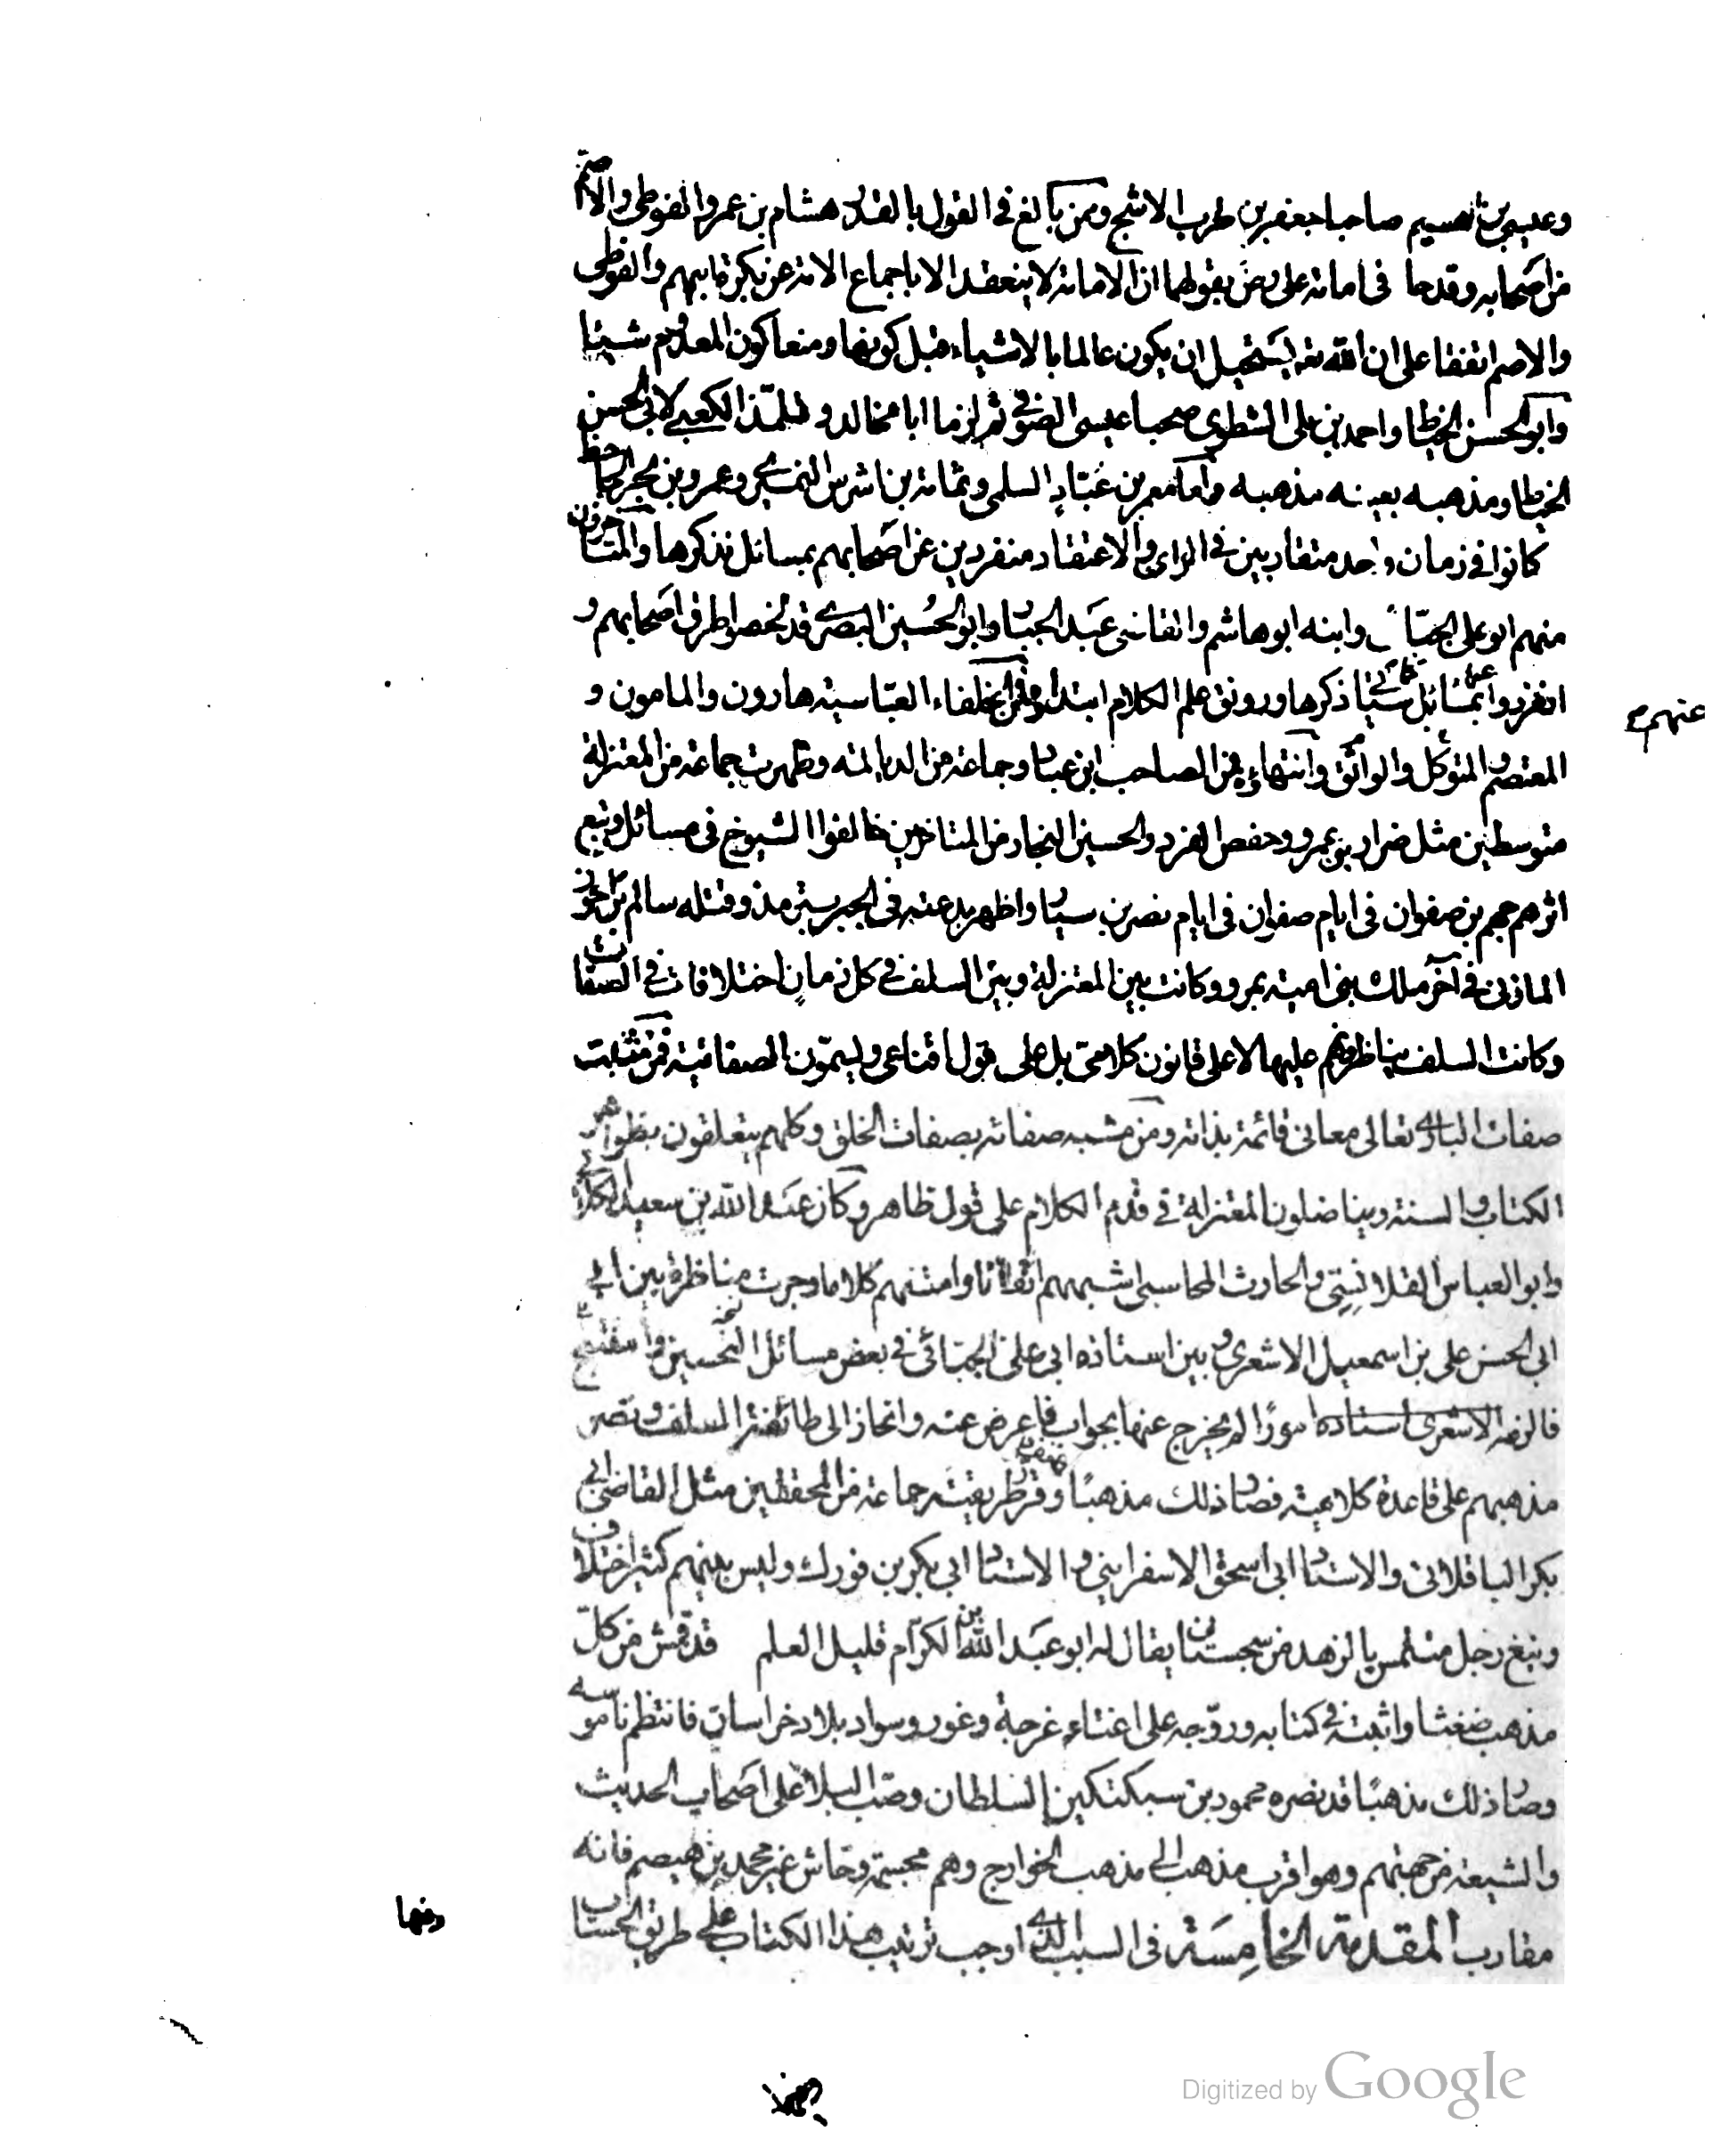 وعيسى بن الهيثم صاحبا جعفر بن حرب الاشج وممن بالغ في القول بالقدر هشام بن عمرو الفوطي والاصم
من اصحابه وقدحا في امامة علي رضى بقولهما ان الامامة لا ينعقد الا باجماع الامة عن بكرة ابيهم والفوطي
والاصم اتفقا على ان الله تعه يستحيل ان يكون عالما بالاشياء قبل كونها ومنعا كون المعدوم شيئا
وابو الحسن الخياط واحمد بن علي الشطوي صحبا عيسى الصوفي ثم لزما ابا مخالد وتلمّذ الكعبي لابي الحسن
الخياط ومذهبه بعينه مذهبه واما معمر بن عبّاد السلمي وثمامة بن اشرس النميري وعمرو بن بحر الجاحظ
كانوا في زمان واحد متقاربين في الراي والاعتقاد منفردين عن اصحابهم بمسائل نذكرها والمتاخرون
منهم ابو علي الجبّائي وابنه ابو هاشم والقاضي عبد الجبار وابو الحسين البصري قد لخصوا طرق اصحابهم و
انفردوا عنهم بمسائل سيأتي ذكرها ورونق علم الكلام ابتداؤه فمن الخلفاء العبّاسية هارون والمامون و
عنهم
المعتصم والمتوكل والواثق وانتهاؤه فمن الصاحب ابن عباد وجماعة من الديالمة وظهرت جماعة من المعتزلة
متوسطين مثل ضرار بن عمرو وحفص الفرد والحسين النجار من المتاخرين خالفوا الشيوخ في مسائل ونبع
اثرهم جهم بن صفوان في ايام صفوان في ايام نصر بن سيار واظهر بدعته في الجبر بترمذ وقتله سالم بن احوز
المازني في آخر ملك بني امية بمرو وكانت بين المعتزلة وبين السلف في كل زمان اختلافات في الصفات
وكانت السلف يناظرونهم عليها لا على قانون كلامي بل على قول اقناعي ويسمّون الصفاتية فمن مثبت
صفات الباري تعالى معاني قائمة بذاته ومن مشبه صفاته بصفات الخلق وكلهم يتعلقون بظواهر
الكتاب والسنة ويناضلون المعتزلة في قدم الكلام على قول ظاهر وكان عبد الله بن سعيد الكلابي
وابو العباس القلانسي والحارث المحاسبي اشبههم اتقانا وامتنهم كلاما وجرت مناظرة بين ابي
ابي الحسن علي بن اسمعيل الاشعري وبين استاذه ابي علي الجبّائي في بعض مسائل التحسين والتقبيح
فالزم الاشعري استاذه امورا لم يخرج عنها بجواب فاعرض عنه وانحاز الى طائفة السلف ونصر
مذهبهم على قاعدة كلامية فصار ذلك مذهبا وقرر طريقته جماعة من المحققين مثل القاضي ابي
بكر الباقلاني والاستاذ ابي اسحق الاسفرايني والاستاذ ابي بكر بن فورك وليس بينهم كثير اختلاف
ونبغ رجل متلمس بالزهد من سجستان يقال له ابو عبد الله بن الكرّام قليل العلم قد قمش من كلّ
مذهب ضغثا واثبته في كتابه وروّجه على اغتناء غرجة وغور وسواد بلاد خراسان فانتظم ناموسه
وصار ذلك مذهبا قد نصره محمود بن سبكتكين السلطان وصب البلاء على اصحاب الحديث
والشيعة من جهتهم وهو اقرب مذهب الى مذهب الخوارج وهم مجسمة وحاش غير محمد بن هيصم فانه
مقارب المقدمة الخامسة في السبب الذي اوجب ترتيب هذا الكتاب على طريق الحساب
وفيها
Digitized by Google